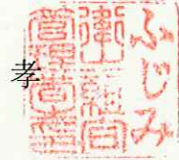 ふじみ
衛生組合
管理者
孝